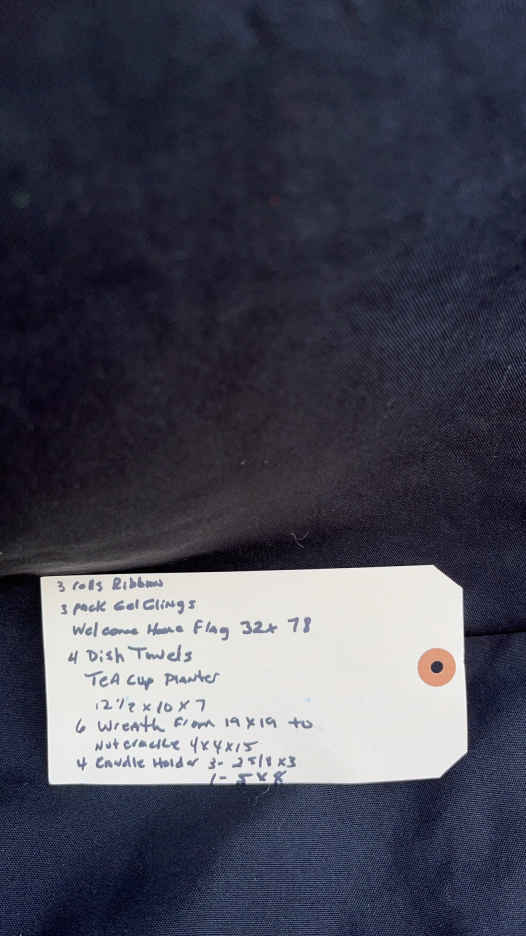 3 rolls Ribbon
3 pack Gel Clings
Welcome Home Flag 32x 78
4 Dish Towels
TeA Cup Planter
12 1/2 x 10 x 7
6 Wreath From 19 x 19 to
Nutcracke 4x4x15
4 Candle Holder 3- 2 5/8 x3
1- 5 x 8